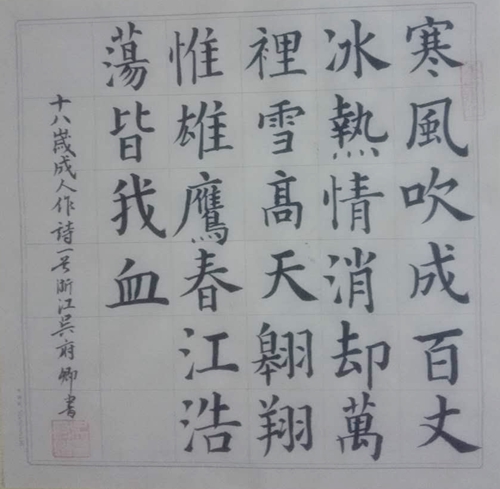 寒風吹成百丈
冰熱情消却萬
裡雪高天翱翔
惟雄鷹春江浩
蕩皆我血
十八歲成人作詩一首浙江吳府卿書